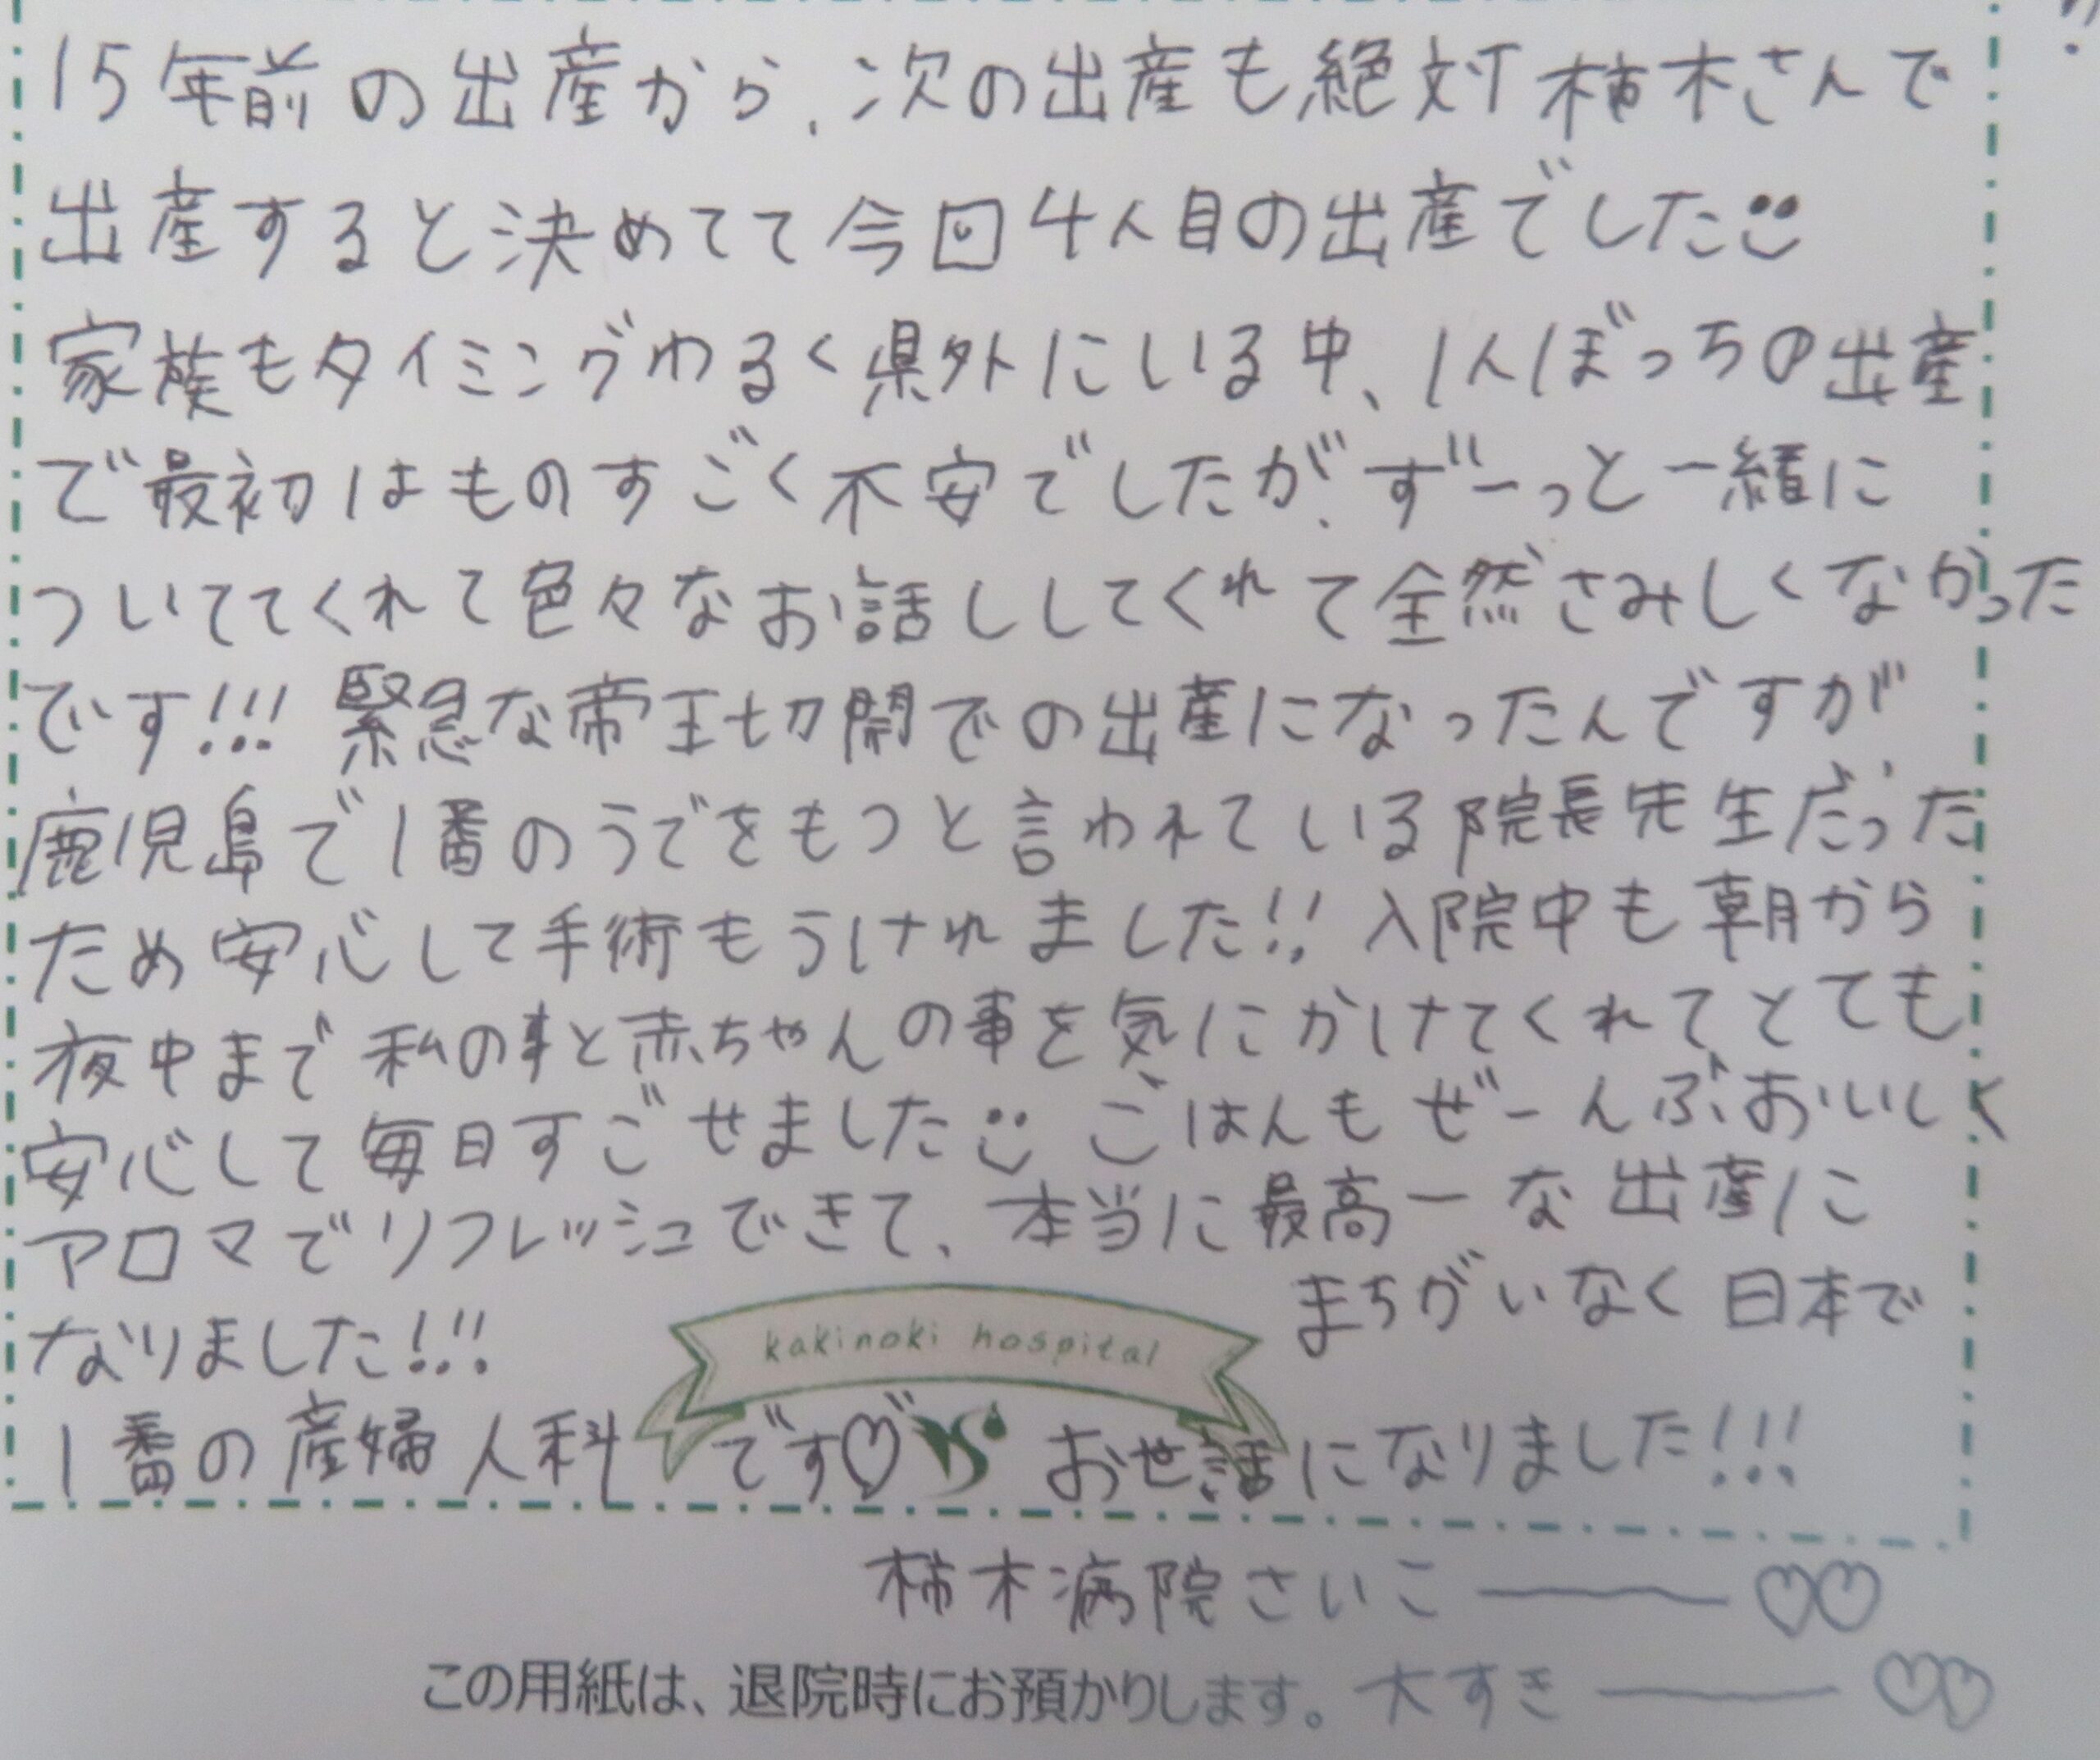 15年前の出産から、次の出産も絶対柿木さんで
出産すると決めてて今回4人目の出産でした
家族もタイミングわるく県外にいる中、1人ぼっちの出産
で最初はものすごく不安でしたが、ずーっと一緒に
ついててくれて色々なお話ししてくれて全然さみしくなかった
です!!! 緊急な帝王切開での出産になったんですが
鹿児島で1番のうでをもつと言われている院長先生だった
ため安心して手術もうけれました!! 入院中も朝から
夜中まで私の事と赤ちゃんの事を気にかけてくれてとても
安心して毎日すごせました ごはんもぜーんぶおいしく
アロマでリフレッシュできて、本当に最高ーな出産に
なりました!!!
kakinoki hospital
まちがいなく日本で
1番の産婦人科です♡ お世話になりました!!!
柿木病院さいこー♡♡
この用紙は、退院時にお預かりします。 大すきー♡♡